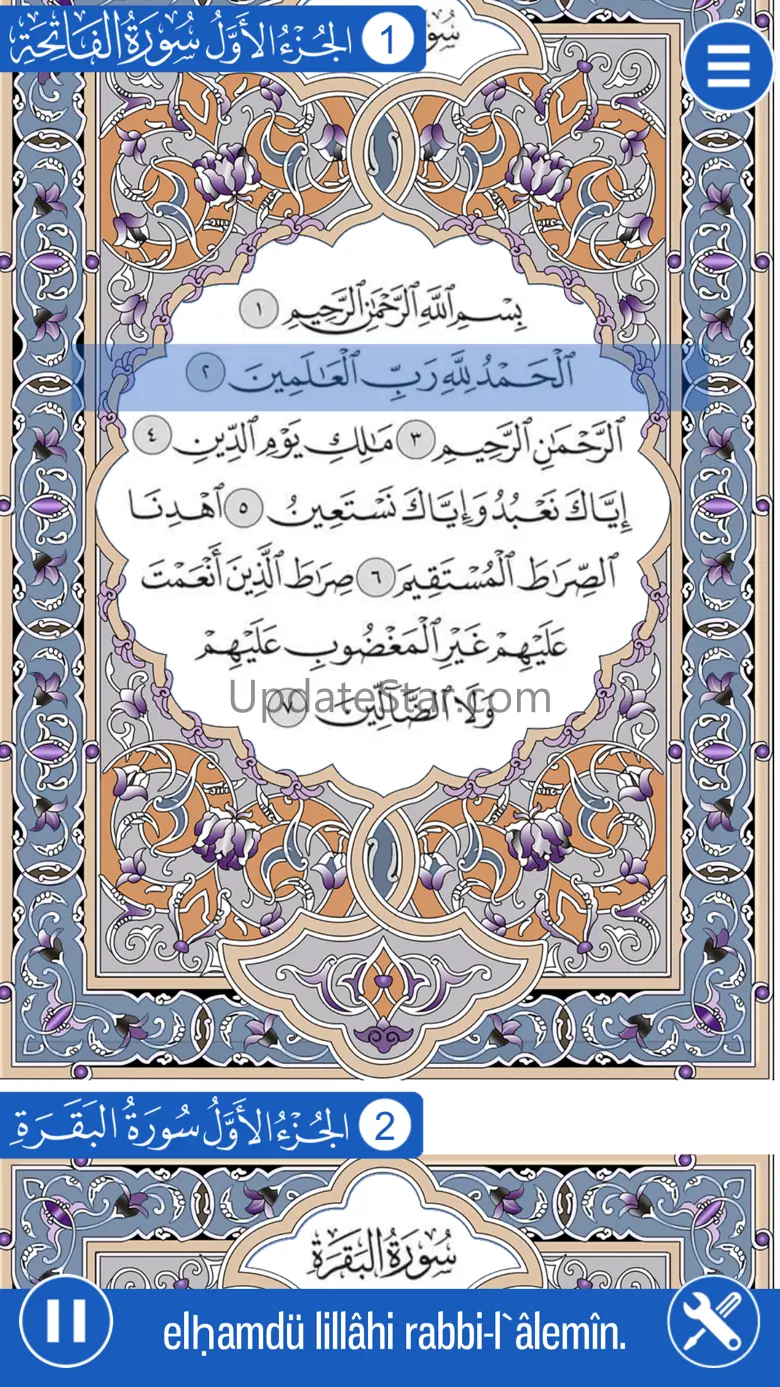 الجُزْءُ الأَوَّلُ سُورَةُ الفَاتِحَةِ 1
بِسْمِ ٱللَّهِ ٱلرَّحْمَٰنِ ٱلرَّحِيمِ ١
ٱلْحَمْدُ لِلَّهِ رَبِّ ٱلْعَٰلَمِينَ ٢
ٱلرَّحْمَٰنِ ٱلرَّحِيمِ ٣ مَٰلِكِ يَوْمِ ٱلدِّينِ ٤
إِيَّاكَ نَعْبُدُ وَإِيَّاكَ نَسْتَعِينُ ٥ ٱهْدِنَا
ٱلصِّرَٰطَ ٱلْمُسْتَقِيمَ ٦ صِرَٰطَ ٱلَّذِينَ أَنْعَمْتَ
عَلَيْهِمْ غَيْرِ ٱلْمَغْضُوبِ عَلَيْهِمْ
وَلَا ٱلضَّآلِّينَ ٧
UpdateStar.com
الجُزْءُ الأَوَّلُ سُورَةُ البَقَرَةِ 2
سُورَةُ البَقَرَةِ
elḥamdü lillâhi rabbi-l`âlemîn.